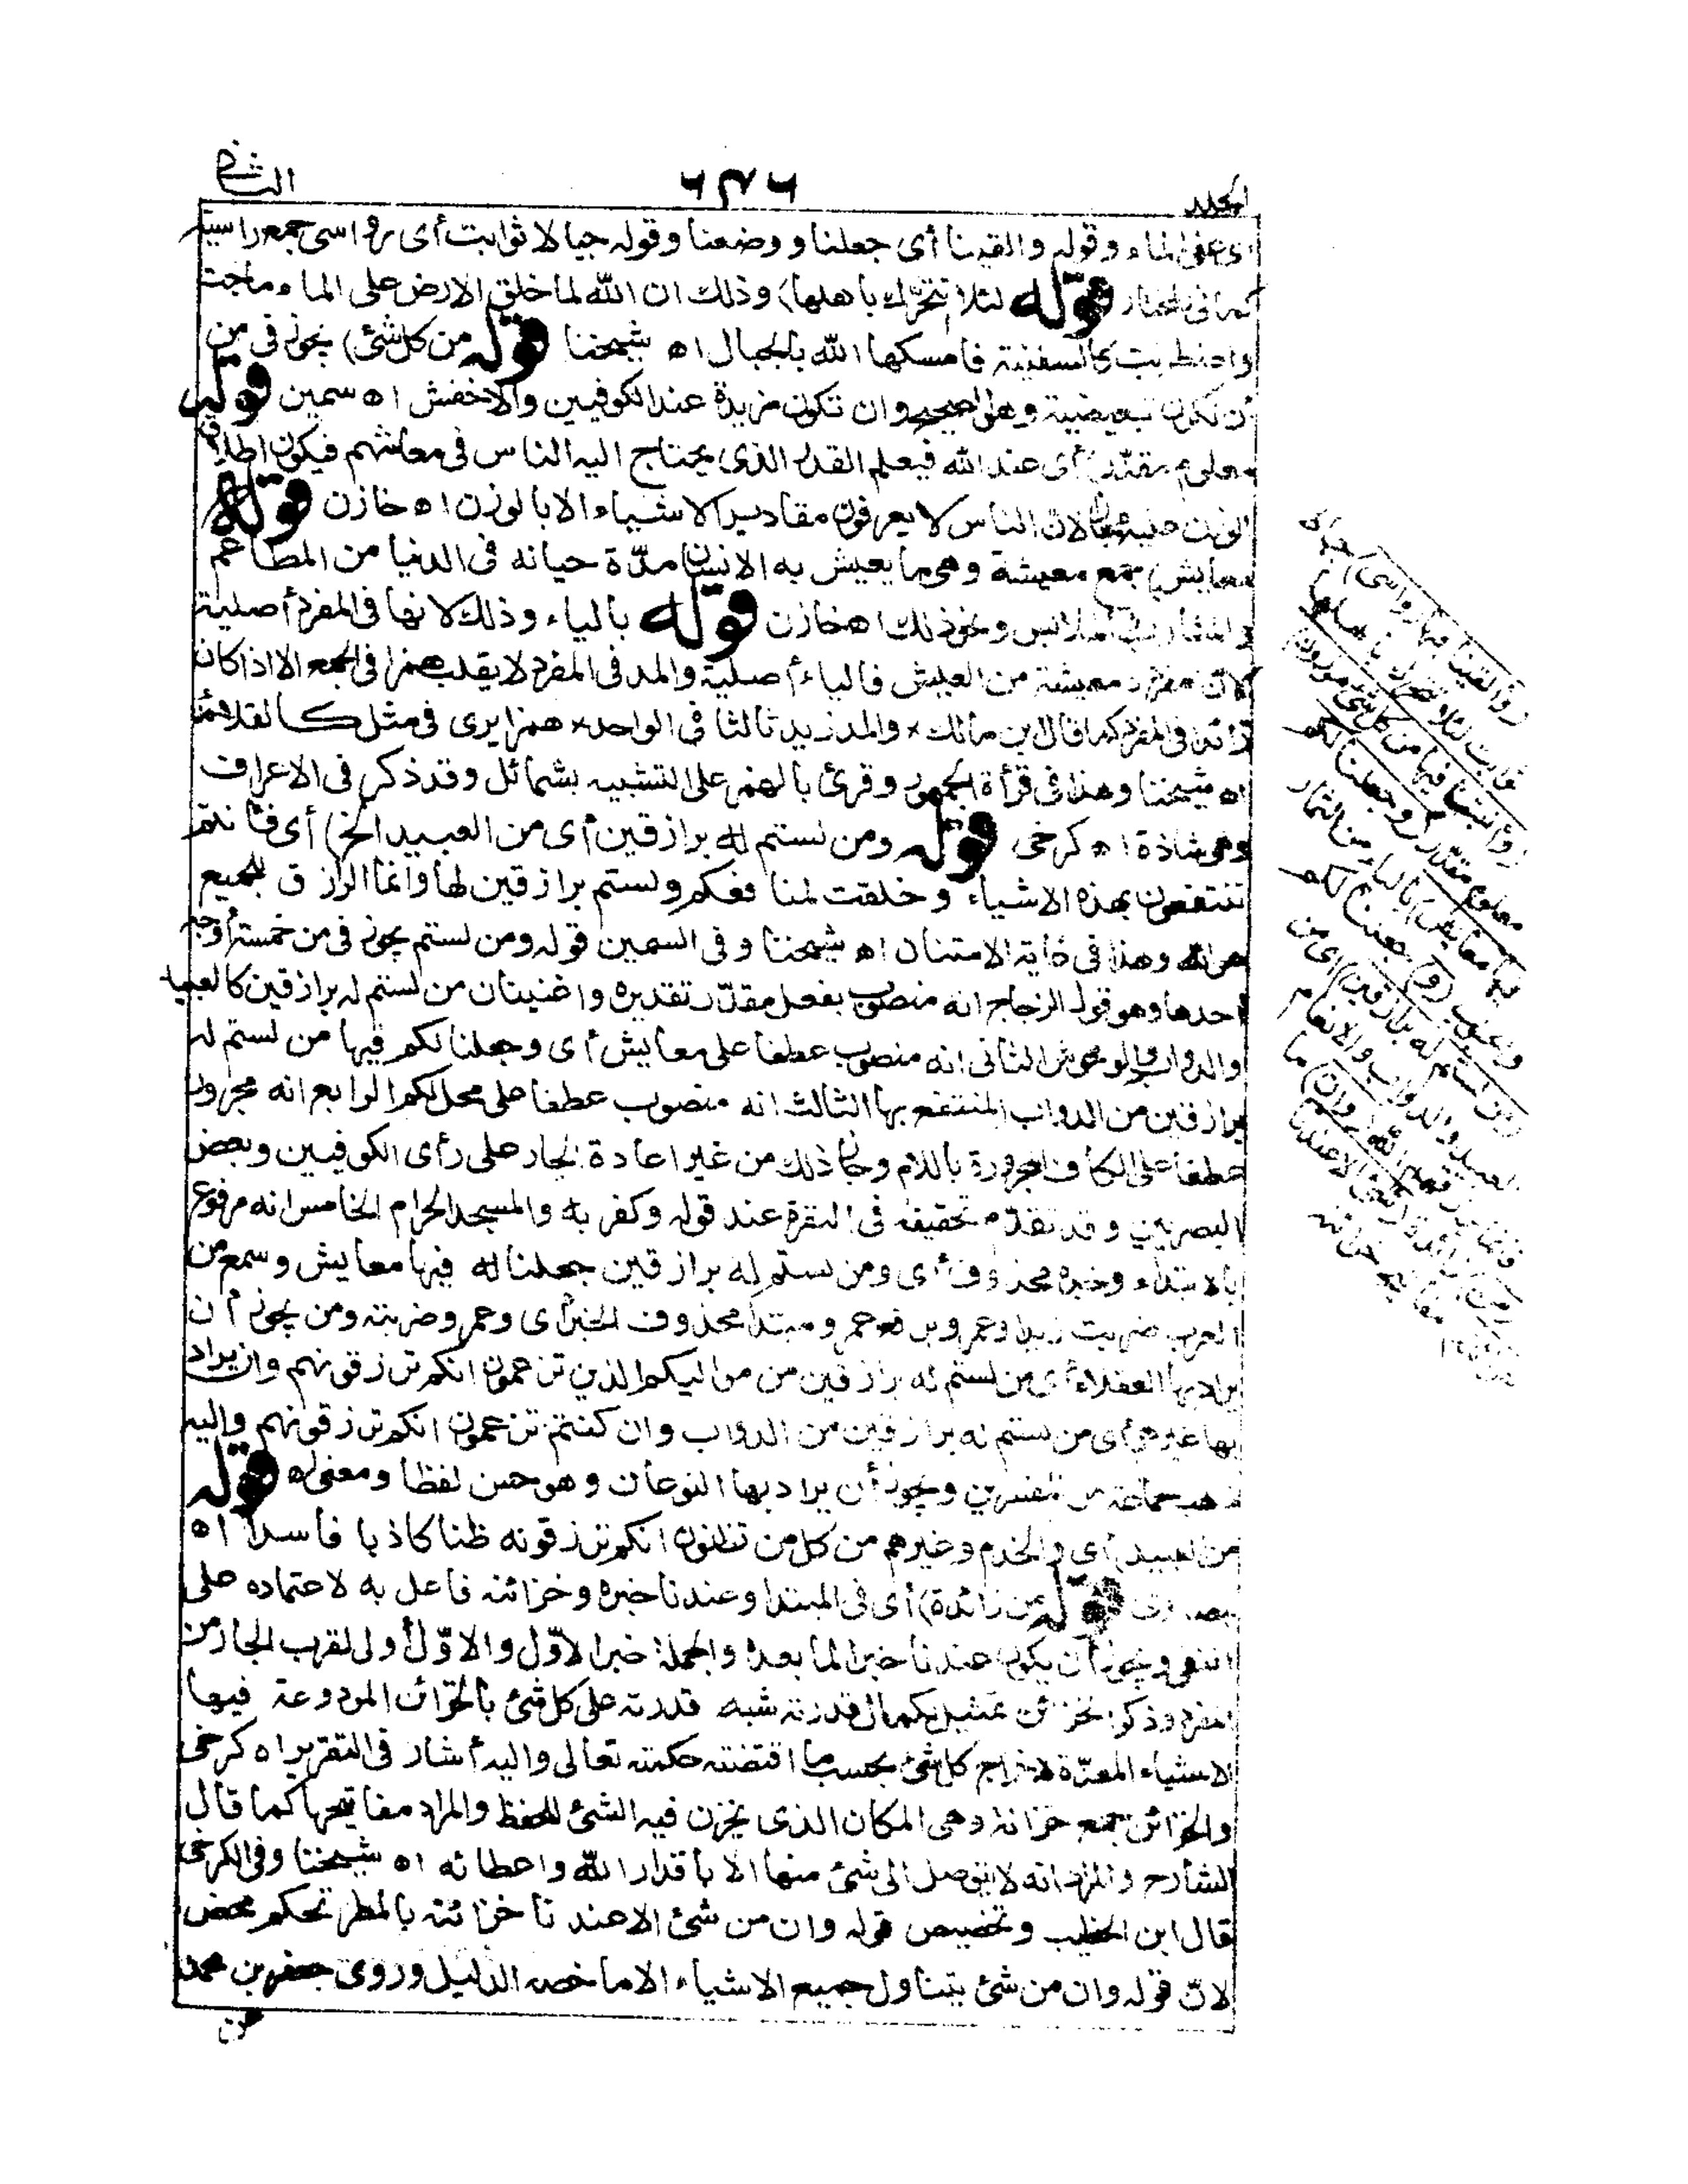 المجلد ٦٣٦ الثانى
أى على الماء وقوله والقينا أى جعلنا ووضعنا وقوله جبالا ثوابت أى رواسى جمع راسية
كما فى المختار قوله لئلا تتحرّك بأهلها) وذلك ان الله لما خلق الارض على الماء ماجت
واضطربت كالسفينة فامسكها الله بالجبال اه شيخنا قوله من كل شئ) يجوز فى من
أن تكون تبعيضية وهو الصحيح وان تكون مزيدة عند الكوفيين والاخفش اه سمين قوله
معلوم مقدّر) أى عند الله فيعلم القدر الذى يحتاج اليه الناس فى معاشهم فيكون اطلاق
الوزن عليه مجازا لان الناس لا يعرفون مقادير الاشياء الا بالوزن اه خازن قوله
معايش) جمع معيشة وهى ما يعيش به الانسان مدّة حياته فى الدنيا من المطاعم
والمشارب والملابس ونحو ذلك اه خازن قوله بالياء وذلك لانها فى المفرد أصلية
لان مفرد معيشة من العيش فالياء أصلية والمد فى المفرد لا يقلب همزا فى الجمع الا اذا كان
زائدا فى المفرد كما قال ابن مالك * والمد زيد ثالثا فى الواحد * همزا يرى فى مثل كالقلائد
اه شيخنا وهذا فى قرأة الجمهور وقرئ بالهمز على التشبيه بشمائل وقد ذكر فى الاعراف
وهو شاذة اه كرخى قوله ومن لستم له برازقين أى من العبيد الخ) أى فأنتم
تنتفعون بهذه الاشياء وخلقت لمنافعكم ولستم برازقين لها وانما الرازق للجميع
هو الله وهذا فى غاية الامتنان اه شيخنا وفى السمين قوله ومن لستم يجوز فى من خمسة أوجه
احدها وهو قول الزجاج انه منصوب بفعل مقدّر تقديره واغنينا من لستم له برازقين كالعبيد
والدواب والوحوش الثانى انه منصوب عطفا على معايش أى وجعلنا لكم فيها من لستم له
برازقين من الدواب المنتفع بها الثالث انه منصوب عطفا على محل لكم الرابع انه مجرور
عطفا على الكاف المجرورة باللام وجاز ذلك من غير اعادة الجار على رأى الكوفيين وبعض
البصريين وقد تقدّم تحقيقه فى البقرة عند قوله وكفر به والمسجد الحرام الخامس انه مرفوع
بالابتداء وخبره محذوف أى ومن لستم له برازقين جعلنا له فيها معايش وسمع من
العرب ضربت زيدا وعمرو برفع عمرو مبتدأ محذوف الخبر أى وعمرو ضربته ومن يجوز أن
يراد بها العقلاء أى من لستم له برازقين من مواليكم الذين تزعمون انكم ترزقونهم وان يراد
بها غيرهم أى من لستم له برازقين من الدواب وان كنتم تزعمون انكم ترزقونهم واليه
ذهب جماعة من المفسرين ويجوز أن يراد بها النوعان وهو حسن لفظا ومعنى اه قوله
من العبيد) أى والخدم وغيرهم من كل من تظنون انكم ترزقونه ظنا كاذبا فاسدا اه
بيضاوى قوله من زائدة) أى فى المبتدا وعندنا خبره وخزائنه فاعل به لاعتماده على
النفى ويجوز أن يكون عندنا خبرا لما بعده والجملة خبر الاوّل والاوّل أولى لقرب الجار من
المفرد وذكر الخزائن تمثيل لكمال قدرته شبه قدرته على كل شئ بالخزائن المودوعة فيها
الاشياء المعدّة لاخراج كل شئ بحسب ما اقتضته حكمته تعالى واليه أشار فى التقرير اه كرخى
والخزائن جمع خزانة وهى المكان الذى يخزن فيه الشئ للحفظ والمراد مفاتيحها كما قال
الشارح والمراد انه لا يتوصل الى شئ منها الا باقدار الله واعطائه اه شيخنا وفى الكرخى
قال ابن الخطيب وتخصيص قوله وان من شئ الا عندنا خزائنه بالمطر تحكم محض
لانّ قوله وان من شئ يتناول جميع الاشياء الا ما خصه الدليل وروى جعفر بن محمد
عن
(وألقينا فيها رواسى) جبالا
ثوابت لئلا تتحرك بأهلها
(وأنبتنا فيها من كل شئ موزون)
معلوم مقدّر (وجعلنا لكم
فيها معايش) بالياء من الثمار
والحبوب (و) جعلنا لكم
(من لستم له برازقين) أى من
العبيد والدواب والانعام
فانما يرزقهم الله (وان) ما
(من) زائدة (شئ الا عندنا
خزائنه) مفاتيح خزائنه